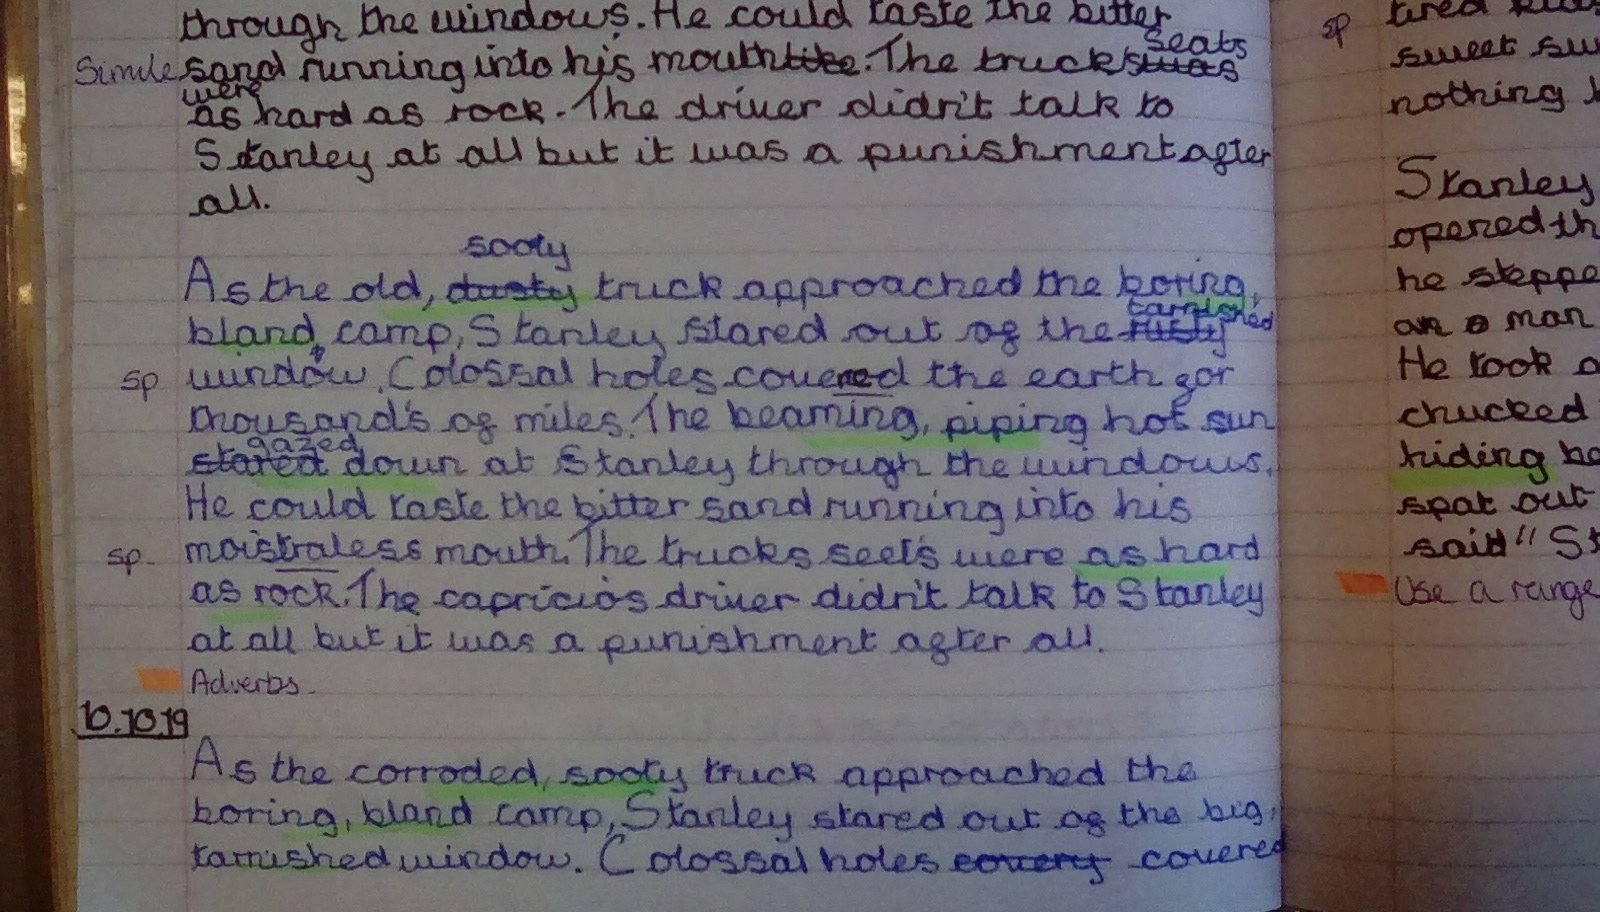 through the windows. He could taste the bitter
seats
Simile sand running into his mouth like. The trucks
were
as hard as rock. The driver didn't talk to
Stanley at all but it was a punishment after
all.
sooty
As the old, dusty truck approached the boring,
tarnished
bland, camp, Stanley stared out of the rusty
sp window. Colossal holes covered the earth for
thousand's of miles. The beaming, piping hot sun
gazed
stared down at Stanley through the windows.
He could taste the bitter sand running into his
sp. moistraless mouth. The trucks seets were as hard
as rock. The capricios driver didn't talk to Stanley
at all but it was a punishment after all.
Adverbs.
10.10.19
As the corroded, sooty truck approached the
boring, bland camp, Stanley stared out of the big,
tarnished window. Colossal holes covery covered
sp tired
sweet
nothing
Stanley
opened th
he steppe
an a man
He took a
chucked
hiding
spat out
said" St
Use a range